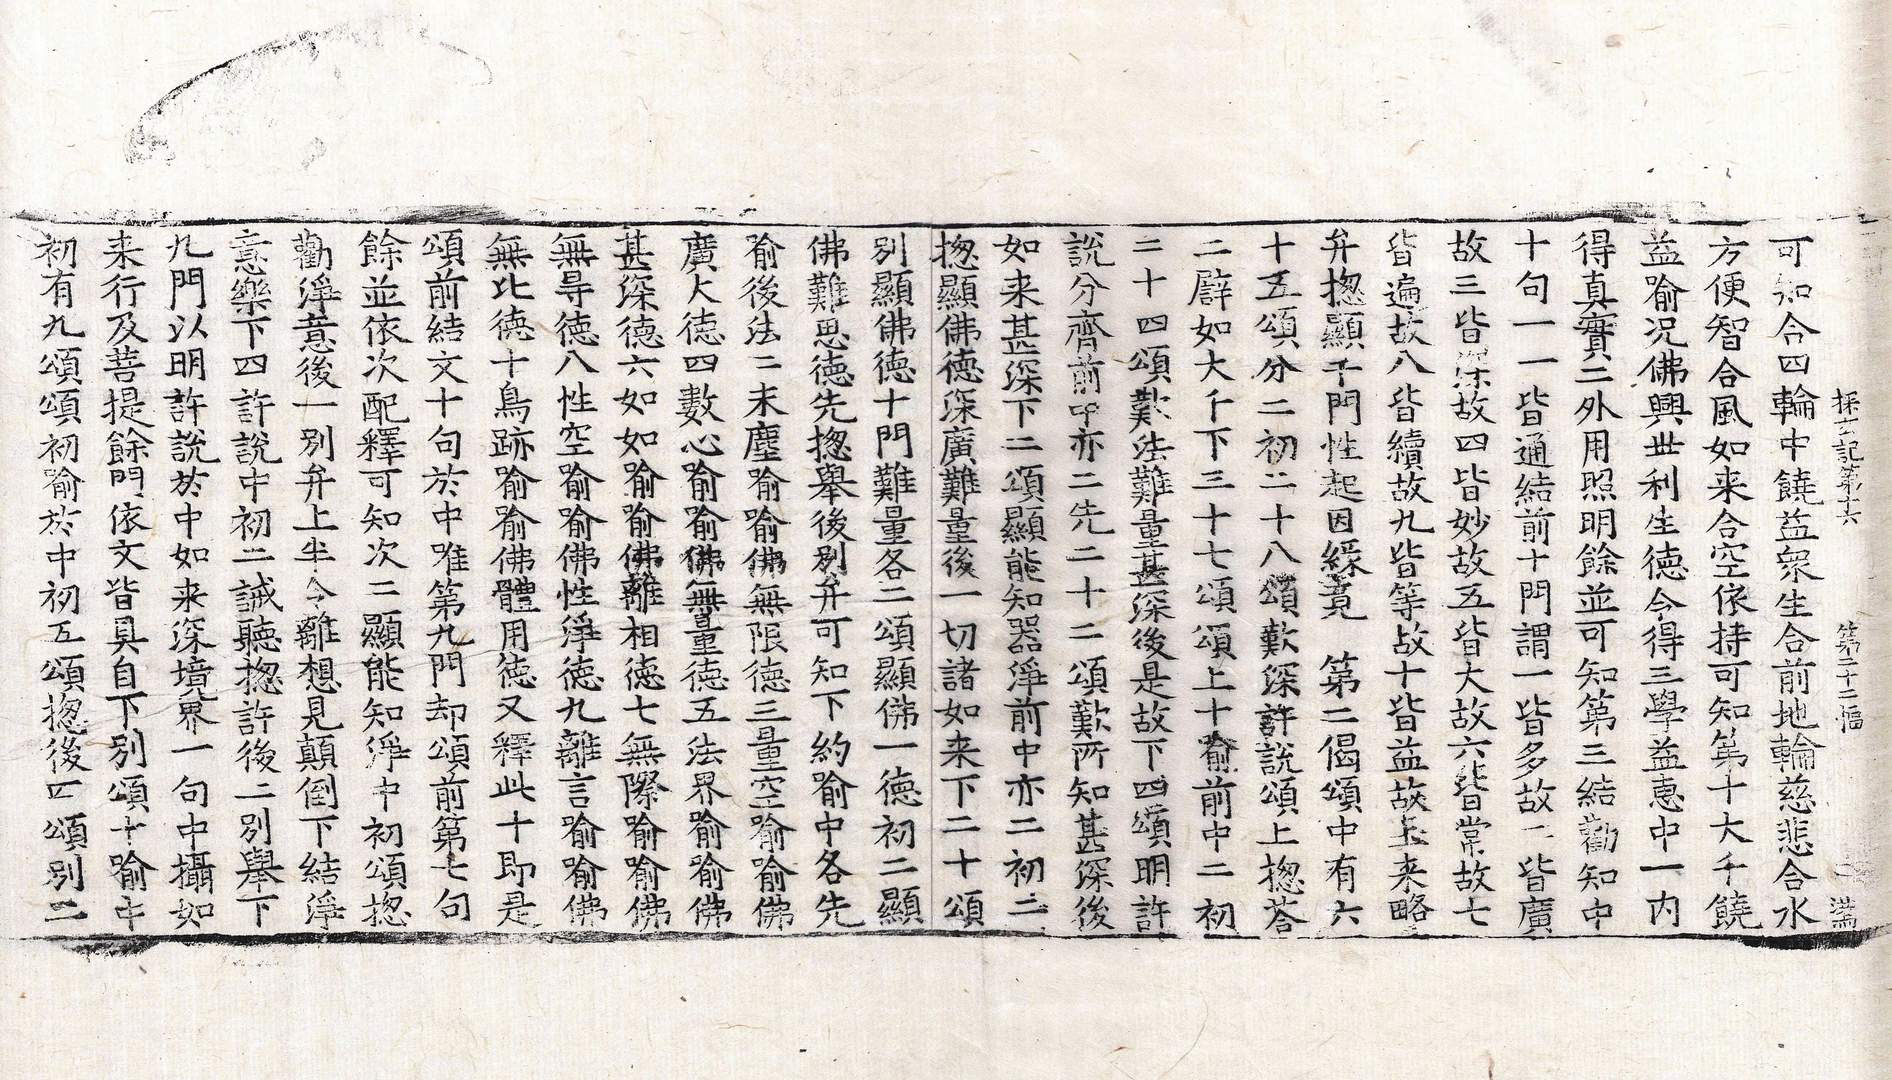 探玄記第六 第二十二幅 滿
可知合四輪中饒益衆生合前地輪慈悲合水
方便智合風如来合空依持可知第十大千饒
益喻况佛興丗利生徳令得三學益惠中一内
得真實二外用照明餘並可知第三結勸知中
十句一一皆通結前十門謂一皆多故二皆廣
故三皆深故四皆妙故五皆大故六皆常故七
皆遍故八皆續故九皆等故十皆益故上来略
弁揔顯千門性起因緣竟 第二偈頌中有六
十五頌分二初二十八頌歎深許說頌上揔荅
二譬如大千下三十七頌頌上十喻前中二初
二十四頌歎法難量甚深後是故下四頌明許
說分齊前中亦二先二十二頌歎所知甚深後
如来甚深下二頌顯能知器淨前中亦二初二
揔顯佛徳深廣難量後一切諸如来下二十頌
別顯佛徳十門難量各二頌顯佛一徳初二顯
佛難思徳先揔舉後別弁可知下約喻中各先
喻後法二末塵喻喻佛無限徳三量空喻喻佛
廣大徳四數心喻喻佛無量徳五法界喻喻佛
甚深徳六如如喻喻佛離相徳七無際喻喻佛
無㝵徳八性空喻喻佛性淨徳九離言喻喻佛
無比徳十鳥跡喻喻佛體用徳又釋此十即是
頌前結文十句於中唯第九門却頌前第七句
餘並依次配釋可知次二顯能知淨中初頌揔
勸淨意後一別弁上半令離想見顛倒下結淨
意樂下四許說中初二誡聽揔許後二別舉下
九門以明許說於中如来深境界一句中攝如
来行及菩提餘門依文皆具自下別頌十喻中
初有九頌頌初喻於中初五頌揔後四頌別二